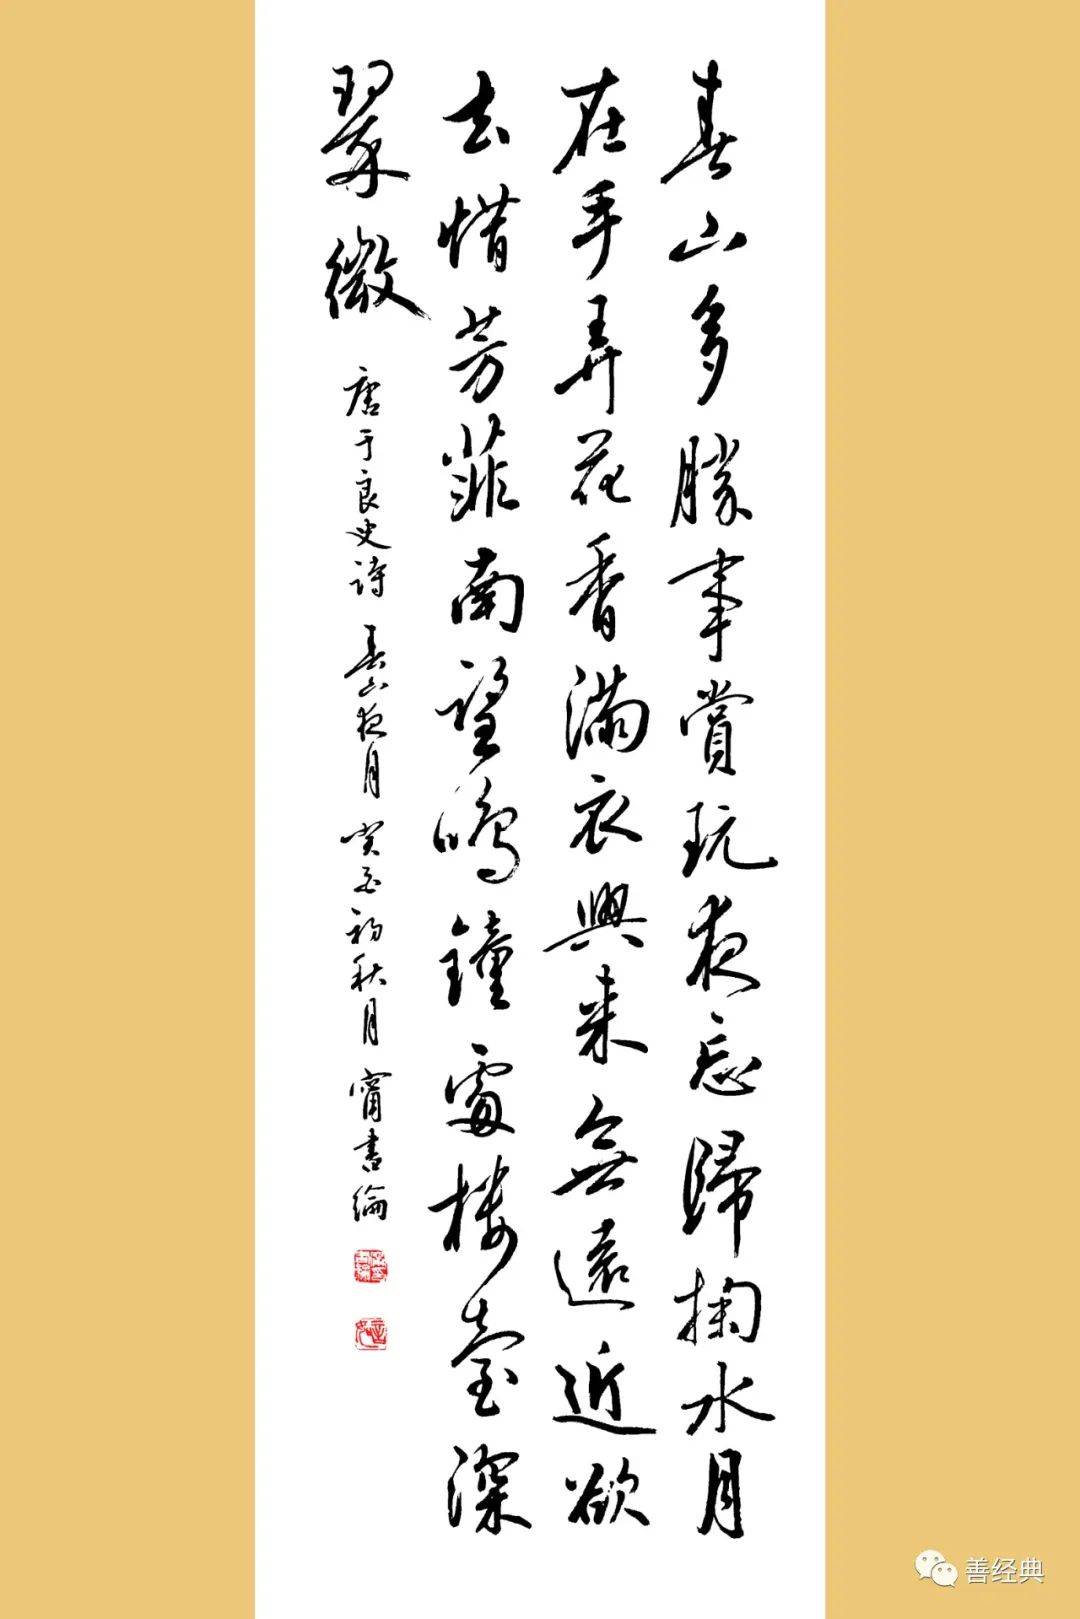 春山多勝事賞玩夜忘歸掬水月
在手弄花香滿衣興來無遠近欲
去惜芳菲南望鳴鐘處樓臺深
翠微
唐于良史詩 春山夜月 癸卯初秋月 甯書綸
善经典